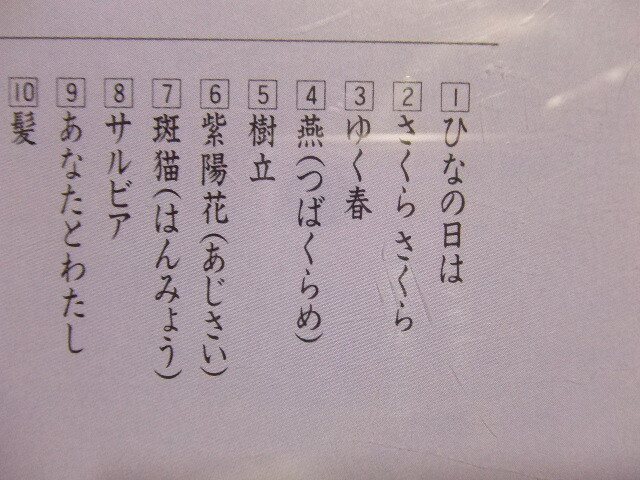 1 ひなの日は
2 さくら さくら
3 ゆく春
4 燕(つばくらめ)
5 樹立
6 紫陽花(あじさい)
7 斑猫(はんみょう)
8 サルビア
9 あなたとわたし
10 髪